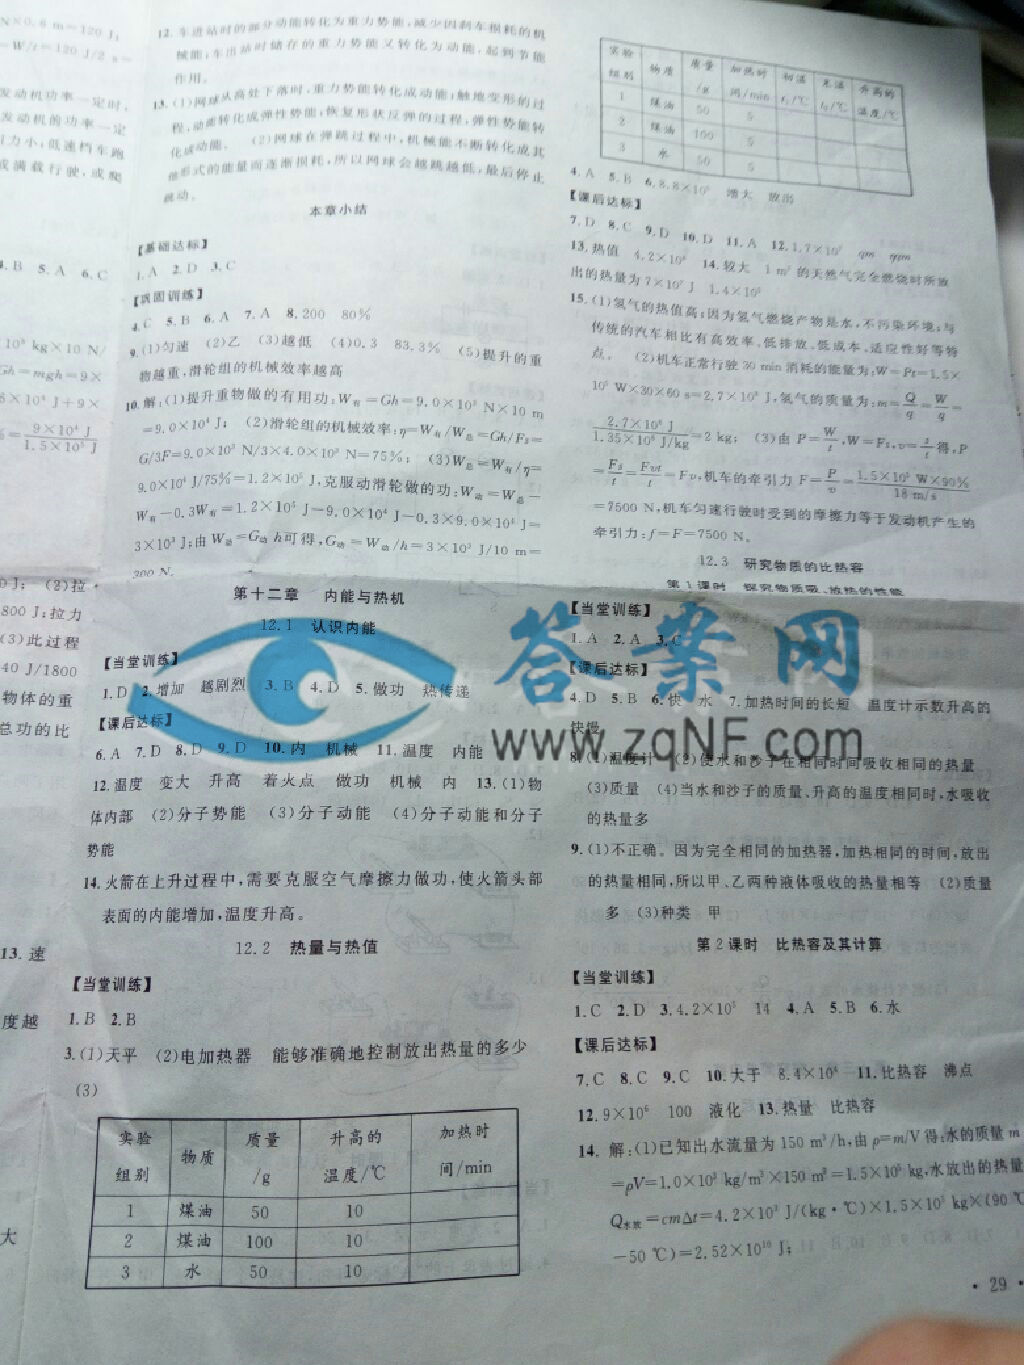 N×0.6 m=120 J;
=W/t=120 J/2 s=
发动机功率一定时,
发动机的功率一定
力小,低速档车跑
或满载行驶,或爬
4.B 5.A 6.C
kg×10 N/
Gh=mgh=9×
J+9×
9×10⁴ J
1.5×10⁵ J
0 J; (2)拉
800 J;拉力
(3)此过程
40 J/1800
物体的重
总功的比
13.速
度越
大
12.车进站时的部分动能转化为重力势能,减少因刹车损耗的机
械能;车出站时储存的重力势能又转化为动能,起到节能
作用。
13.(1)网球从高处下落时,重力势能转化成动能;触地变形的过
程,动能转化成弹性势能;恢复形状反弹的过程,弹性势能转
化成动能。 (2)网球在弹跳过程中,机械能不断转化成其
他形式的能量而逐渐损耗,所以网球会越跳越低,最后停止
跳动。
本章小结
【基础达标】
1.A 2.D 3.C
【巩固训练】
4.C 5.B 6.A 7.A 8.200 80%
9.(1)匀速 (2)乙 (3)越低 (4)0.3 83.3% (5)提升的重
物越重,滑轮组的机械效率越高
10.解:(1)提升重物做的有用功:W有=Gh=9.0×10³ N×10 m
=9.0×10⁴ J; (2)滑轮组的机械效率:η=W有/W总=Gh/Fs=
G/3F=9.0×10³ N/3×4.0×10³ N=75%; (3)W总=W有/η=
9.0×10⁴ J/75%=1.2×10⁵ J,克服动滑轮做的功:W动=W总-
W有-0.3W有=1.2×10⁵ J-9.0×10⁴ J-0.3×9.0×10⁴ J=
3×10³ J;由W动=G动h可得,G动=W动/h=3×10³ J/10 m=
300 N.
第十二章 内能与热机
12.1 认识内能
【当堂训练】
1.D 2.增加 越剧烈 3.B 4.D 5.做功 热传递
【课后达标】
6.A 7.D 8.D 9.D 10.内 机械 11.温度 内能
12.温度 变大 升高 着火点 做功 机械 内 13.(1)物
体内部 (2)分子势能 (3)分子动能 (4)分子动能和分子
势能
14.火箭在上升过程中,需要克服空气摩擦力做功,使火箭头部
表面的内能增加,温度升高。
12.2 热量与热值
【当堂训练】
1.B 2.B
3.(1)天平 (2)电加热器 能够准确地控制放出热量的多少
(3)
实验组别 物质 质量/g 升高的温度/℃ 加热时间/min
1 煤油 50 10
2 煤油 100 10
3 水 50 10
实验组别 物质 质量/g 加热时间/min 初温t₁/℃ 末温t₂/℃ 升高的温度/℃
1 煤油 50 5
2 煤油 100 5
3 水 50 5
4.A 5.B 6.8.8×10⁵ 增大 放出
【课后达标】
7.D 8.C 9.D 10.D 11.A 12.1.7×10⁷ qm ηqm
13.热值 4.2×10⁴ 14.较大 1 m³的天然气完全燃烧时所放
出的热量为7×10⁷ J 1.4×10⁶
15.(1)氢气的热值高;因为氢气燃烧产物是水,不污染环境;与
传统的汽车相比有高效率、低排放、低成本、适应性好等特
点。 (2)机车正常行驶30 min消耗的能量为:W=Pt=1.5×
10⁵ W×30×60 s=2.7×10⁸ J,氢气的质量为:m=Q/q=W/q=
2.7×10⁸ J/1.35×10⁸ J/kg=2 kg; (3)由P=W/t,W=Fs,v=s/t得,P
=Fs/t=Fvt/t=Fv,机车的牵引力F=P/v=1.5×10⁵ W×90%/18 m/s
=7500 N,机车匀速行驶时受到的摩擦力等于发动机产生的
牵引力:f=F=7500 N。
12.3 研究物质的比热容
第1课时 探究物质吸、放热的性能
【当堂训练】
1.A 2.A 3.C
【课后达标】
4.D 5.B 6.快 水 7.加热时间的长短 温度计示数升高的
快慢
8.(1)温度计 (2)使水和沙子在相同时间吸收相同的热量
(3)质量 (4)当水和沙子的质量、升高的温度相同时,水吸收
的热量多
9.(1)不正确。因为完全相同的加热器,加热相同的时间,放出
的热量相同,所以甲、乙两种液体吸收的热量相等 (2)质量
多 (3)种类 甲
第2课时 比热容及其计算
【当堂训练】
1.C 2.D 3.4.2×10³ 14 4.A 5.B 6.水
【课后达标】
7.C 8.C 9.C 10.大于 8.4×10⁴ 11.比热容 沸点
12.9×10⁶ 100 液化 13.热量 比热容
14.解:(1)已知出水流量为150 m³/h,由ρ=m/V得:水的质量m
=ρV=1.0×10³ kg/m³×150 m³=1.5×10⁵ kg,水放出的热量
Q水放=cmΔt=4.2×10³ J/(kg·℃)×1.5×10⁵ kg×(90 ℃
-50 ℃)=2.52×10¹⁰ J;
·29·
答案网
www.zqNF.com